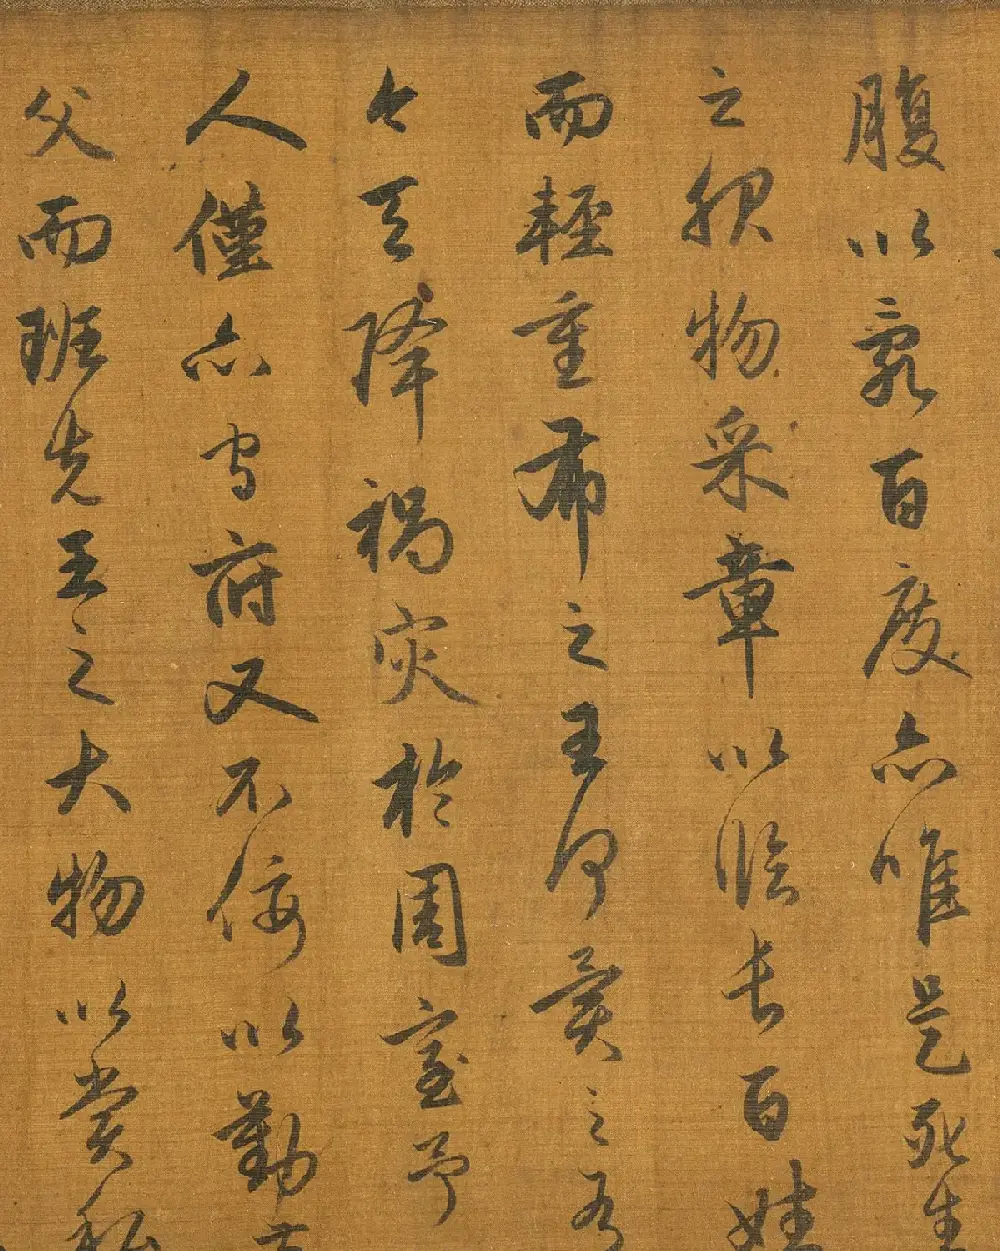 腹以亂百度亦唯是死生
之服物采章以臨長百姓
而輕重布之王何異之有
今天降禍災於周室予
人僅亦守府又不佞以勤
父而班先王之大物以賞私